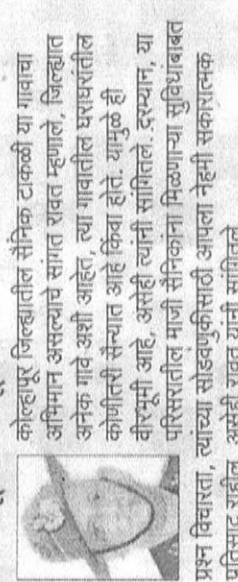 कोल्हापूर जिल्ह्यातील सैनिक टाकळी या गावाचा
अभिमान असल्याचे सांगत रावत म्हणाले, जिल्ह्यात
अनेक गावे अशी आहेत, त्या गावातील घराघरांतील
कोणीतरी सैन्यात आहे किंवा होते. यामुळे ही
वीरभूमी आहे, असेही त्यांनी सांगितले. दरम्यान, या
परिसरातील माजी सैनिकांना मिळणाऱ्या सुविधांबाबत
प्रश्न विचारता, त्यांच्या सोडवणुकीसाठी आपला नेहमी सकारात्मक
प्रतिसाद राहील, असेही रावत यांनी सांगितले.